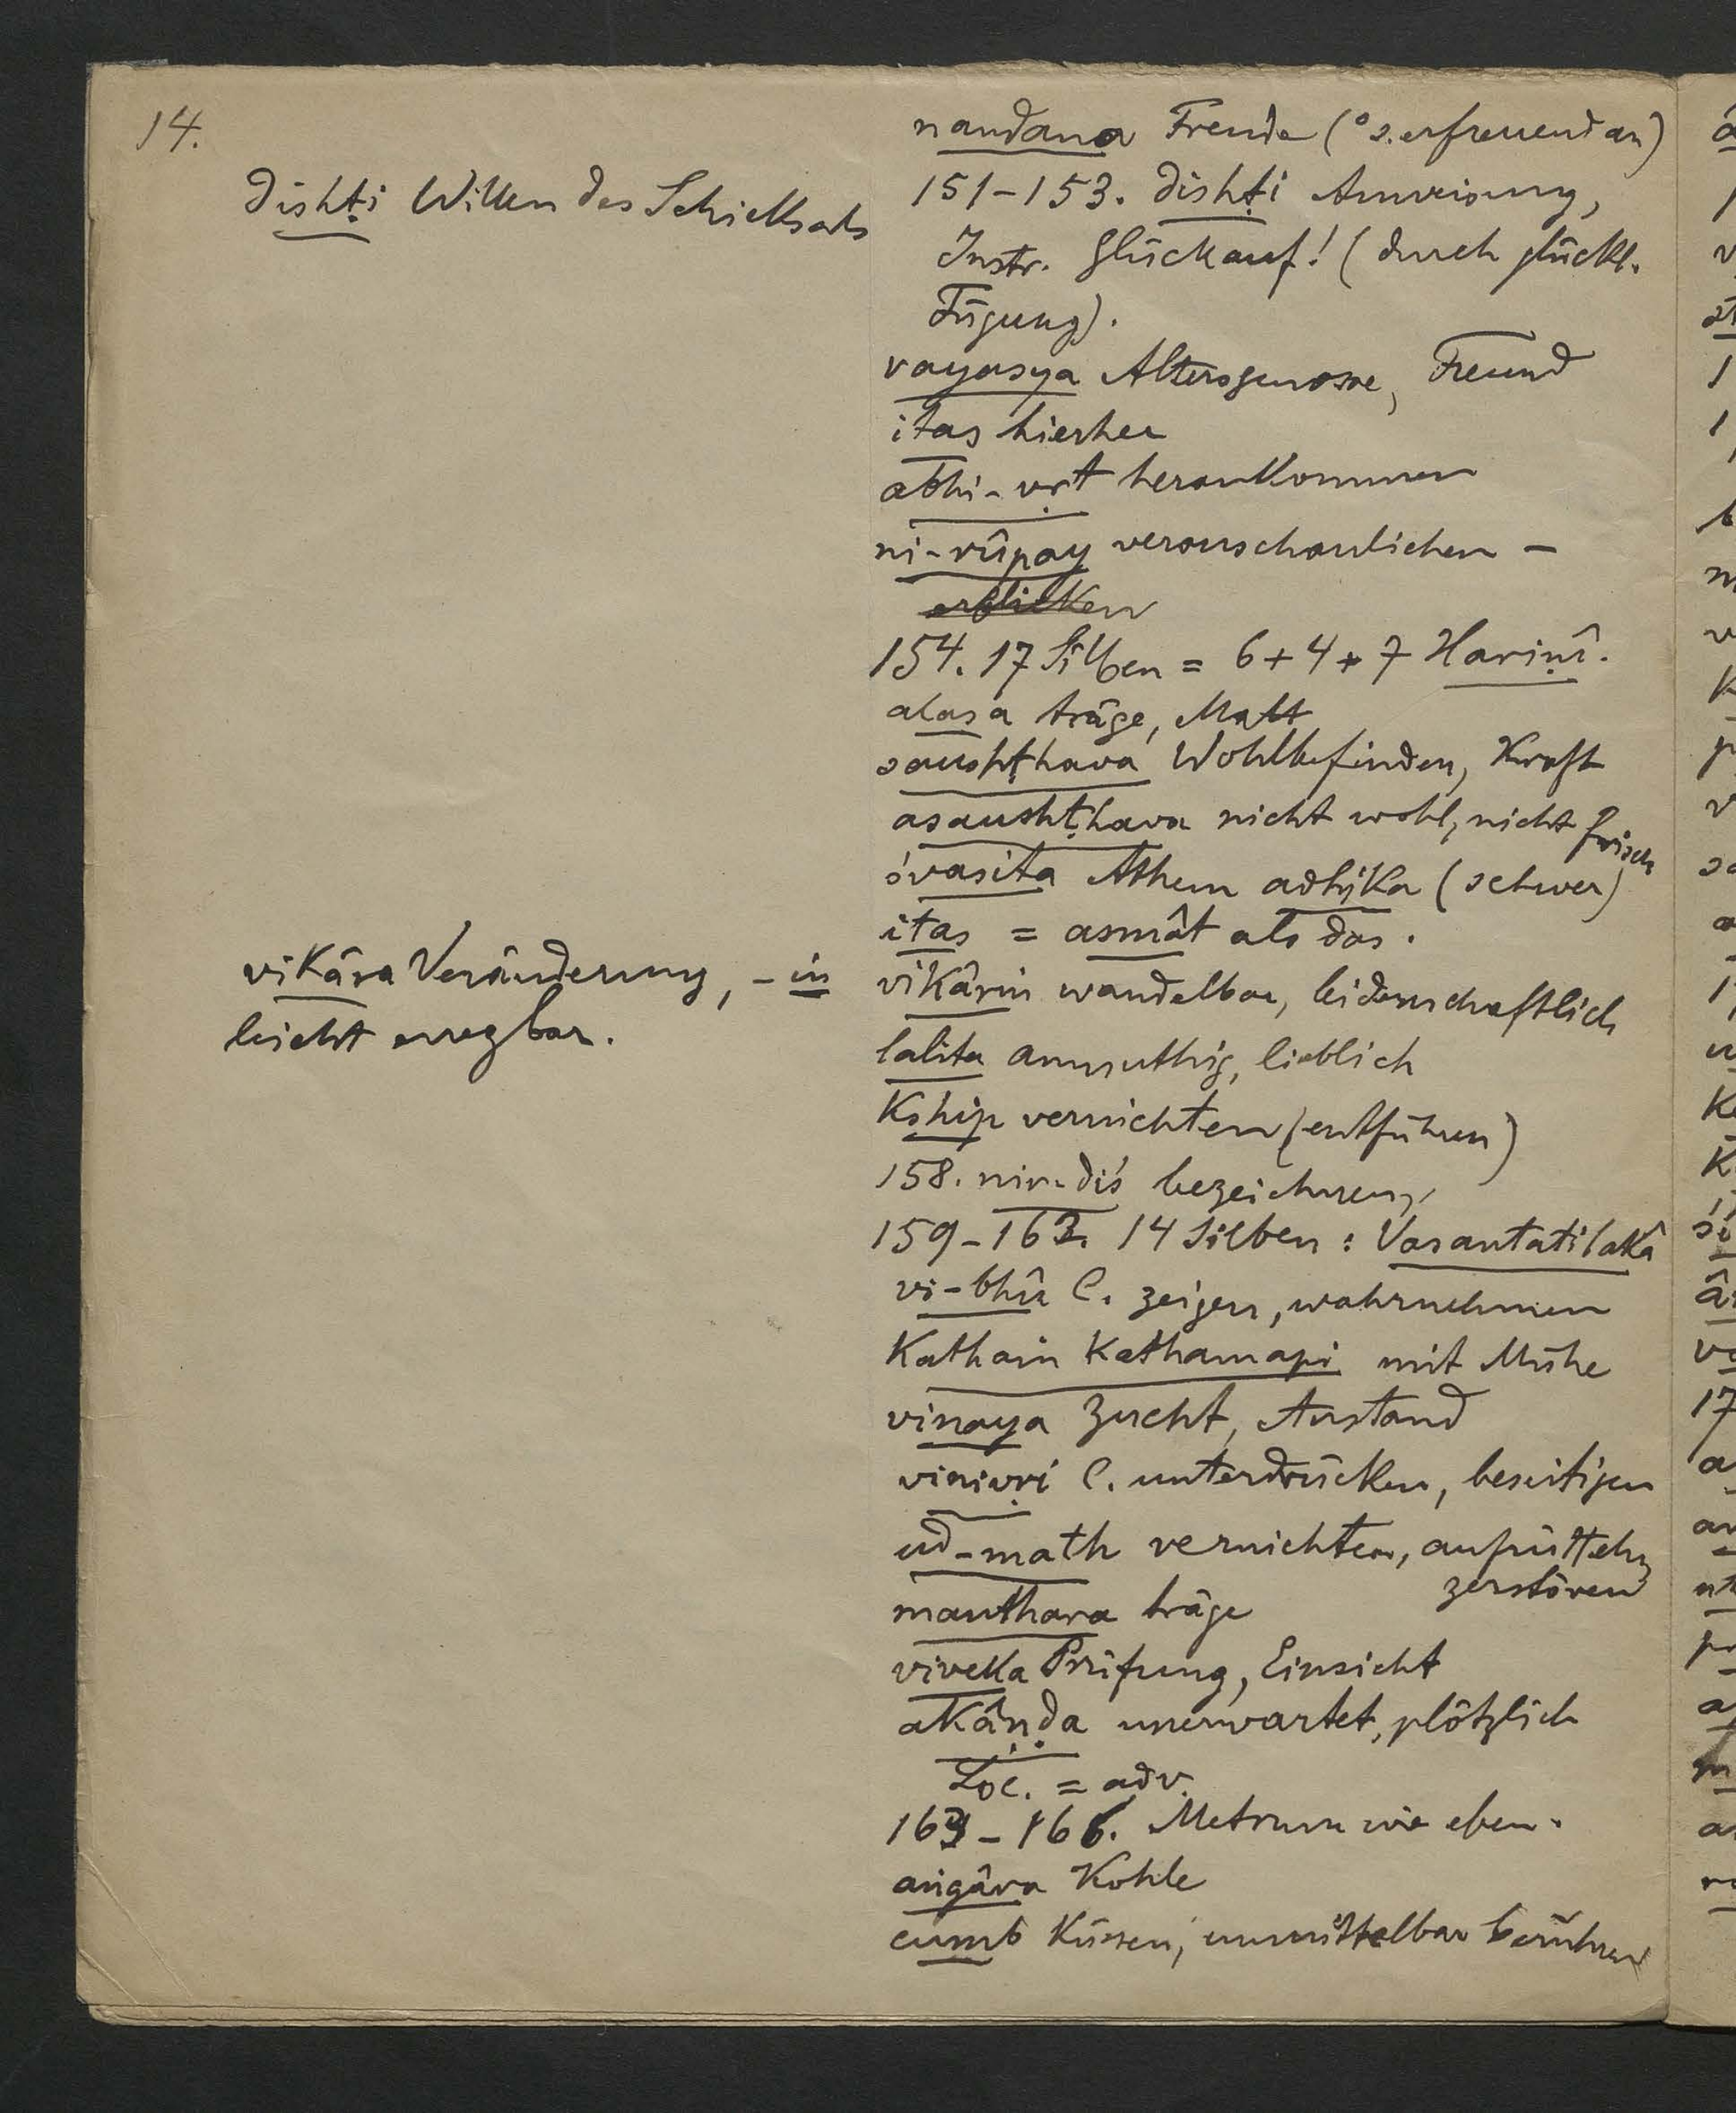 14.
dishṭi Willen des Schicksals
vikâra Veränderung, -in
leicht erregbar.
nandana Freude (° s. erfreuend an)
151-153. dishṭi Anweisung,
Instr. Glückauf! (durch glückl.
Fügung).
vayasya Altersgenosse, Freund
itas hierher
abhi-vṛt herankommen
ni-rûpay veranschaulichen -
erblicken
154. 17 Silben = 6+4+7 Hariṇî.
alasa träge, Matt
saushṭhava Wohlbefinden, Kraft
asaushṭhava nicht wohl, nicht frisch
śvasita Athem adhika (schwer)
itas = asmât als das.
vikârin wandelbar, leidenschaftlich
lalita anmuthig, lieblich
kship vernichten (entführen)
158. nir-diś bezeichnen,
159-162. 14 Silben: Vasantatilakâ
vi-bhû C. zeigen, wahrnehmen
katham kathamapi mit Mühe
vinaya Zucht, Anstand
vinivṛi C. unterdrücken, beseitigen
ud-math vernichten, aufrütteln,
zerstören
manthara träge
viveka Prüfung, Einsicht
akâṇḍa unerwartet, plötzlich
Loc. = adv.
163-166. Metrum wie eben.
aṅgâra Kohle
cumb küssen, unmittelbar berühren